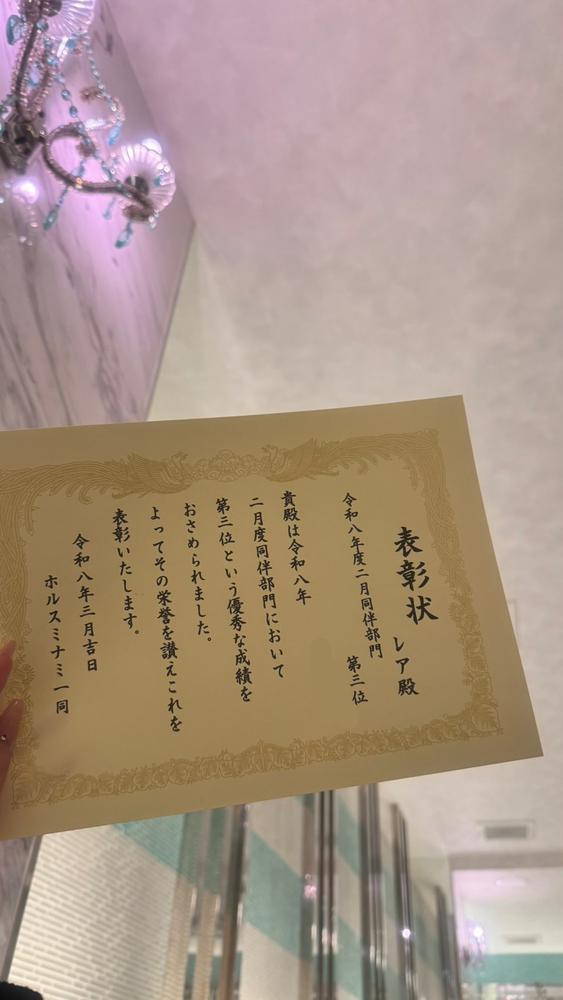 表彰状
レア殿
令和八年度二月同伴部門
第三位
貴殿は令和八年
二月度同伴部門において
第三位という優秀な成績を
おさめられました。
よってその栄誉を讃えこれを
表彰いたします。
令和八年三月吉日
ホルスミナミ一同